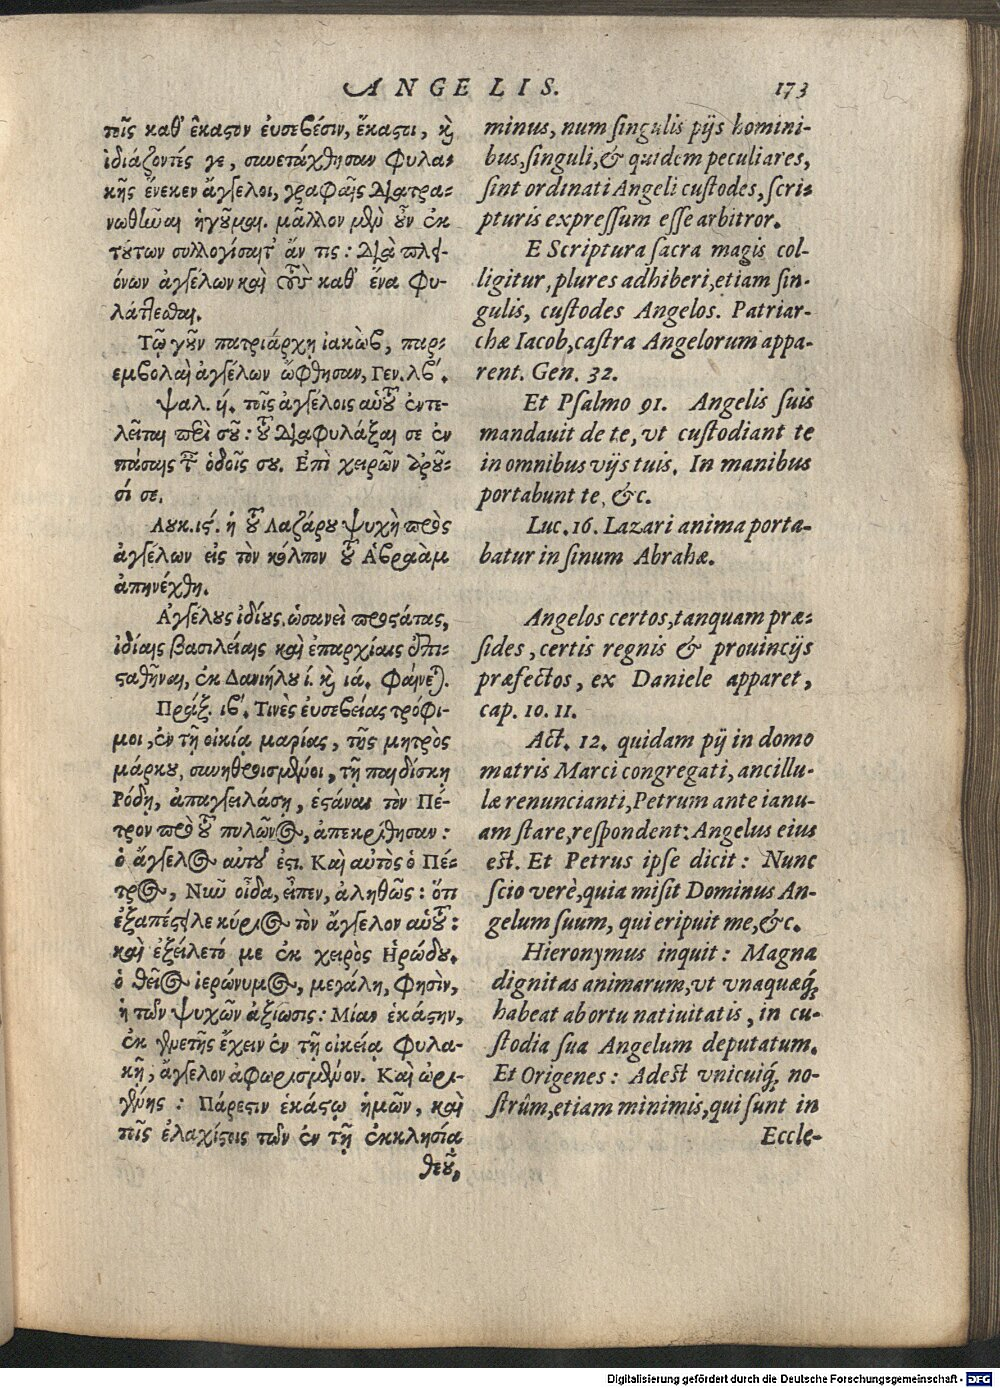 ANGELIS. 173
τοῖς καθ' ἕκαστον ἐυσεβέσιν, ἕκαστι, κὶ
ἰδιάζοντές γε, συνετάχθησαν φυλα-
κῆς ἕνεκεν ἄγγελοι, γραφαῖς διατρα-
νωθῆναι ἡγοῦμαι. μᾶλλον μὲν οὖν ἐκ
τούτων συλλογίσαιτ' ἄν τις: διὰ πλει-
όνων ἀγγέλων καὶ τοὺς καθ' ἕνα φυ-
λάττεσθαι.
Τῷ γοῦν πατριάρχῃ ἰακὼβ, παρ-
εμβολαὶ ἀγγέλων ὤφθησαν, Γεν. λβ'.
ψαλ. ή. τοῖς ἀγγέλοις αὐτοῦ ἐντε-
λεῖται περὶ σοῦ: τοῦ διαφυλάξαι σε ἐν
πάσαις ταῖς ὁδοῖς σου. Επὶ χειρῶν ἀροῦ-
σί σε.
Λουκ. ις'. ἡ τοῦ Λαζάρου ψυχὴ πρὸς
ἀγγέλων εἰς τὸν κόλπον τοῦ Ἀβραὰμ
ἀπηνέχθη.
Αγγέλους ἰδίους, ὡσανεὶ προστάτας,
ἰδίαις βασιλείαις καὶ ἐπαρχίαις ἐπι-
σταθῆναι, ἐκ Δανιήλου ί. κὶ ιά. φαίνεται.
Πράξ. ιβ'. Τινὲς ἐυσεβείας τρόφι-
μοι, ἐν τῇ οἰκίᾳ μαρίας, τῆς μητρὸς
μάρκου, συνηθροισμένοι, τῇ παιδίσκῃ
Ρόδῃ, ἀπαγγειλάσῃ, ἑστάναι τὸν Πέ-
τρον πρὸ τοῦ πυλῶνος, ἀπεκρίθησαν:
ὁ ἄγγελος αὐτοῦ ἐστι. Καὶ αὐτὸς ὁ Πέ-
τρος, Νιῦ οἶδα, εἶπεν, ἀληθῶς: ὅτι
ἐξαπέστειλε κύριος τὸν ἄγγελον αὐτοῦ:
καὶ ἐξείλετό με ἐκ χειρὸς Ηρώδου.
ὁ θεῖος ἱερώνυμος, μεγάλη, φησὶν,
ἡ τῶν ψυχῶν ἀξίωσις: Μίαν ἑκάστην,
ἐκ γενετῆς ἔχειν ἐν τῇ οἰκείᾳ φυλα-
κῇ, ἄγγελον ἀφωρισμένον. Καὶ ὠρι-
γένης: Πάρεστιν ἑκάστῳ ἡμῶν, καὶ
τοῖς ἐλαχίστοις τῶν ἐν τῇ ἐκκλησίᾳ
θεοῦ,
minus, num singulis pijs homini-
bus, singuli, & quidem peculiares,
sint ordinati Angeli custodes, scri-
pturis expressum esse arbitror.
E Scriptura sacra magis col-
ligitur, plures adhiberi, etiam sin-
gulis, custodes Angelos. Patriar-
chæ Iacob, castra Angelorum appa-
rent. Gen. 32.
Et Psalmo 91. Angelis suis
mandauit de te, vt custodiant te
in omnibus vijs tuis. In manibus
portabunt te, &c.
Luc. 16. Lazari anima porta-
batur in sinum Abrahæ.
Angelos certos, tanquam præ-
sides, certis regnis & prouincijs
præfectos, ex Daniele apparet,
cap. 10. 11.
Act. 12. quidam pij in domo
matris Marci congregati, ancillu-
læ renuncianti, Petrum ante ianu-
am stare, respondent: Angelus eius
est. Et Petrus ipse dicit: Nunc
scio verè, quia misit Dominus An-
gelum suum, qui eripuit me, &c.
Hieronymus inquit: Magna
dignitas animarum, vt vnaquæq́;
habeat ab ortu natiuitatis, in cu-
stodia sua Angelum deputatum.
Et Origenes: Adest vnicuiq́; no-
strûm, etiam minimis, qui sunt in
Eccle-
Digitalisierung gefördert durch die Deutsche Forschungsgemeinschaft - DFG